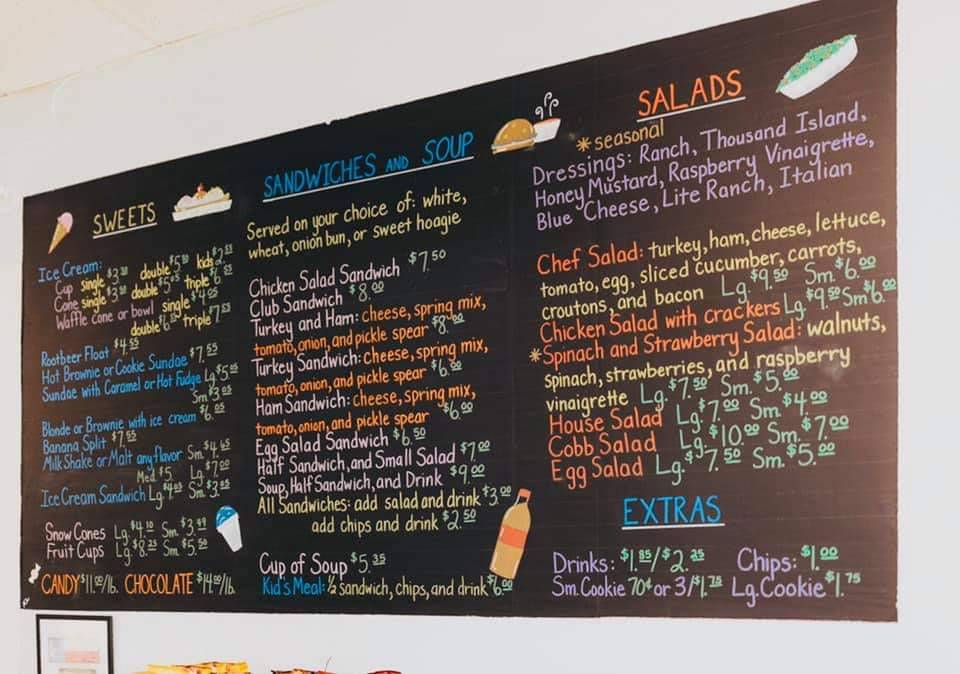 SWEETS
Ice Cream:
Cup single $3. double $5. kids $2.
Cone single $3. double $5. triple $6.
Waffle cone or bowl single $4.05
double $6. triple $7.
Rootbeer Float $4.55
Hot Brownie or Cookie Sundae $7.55
Sundae with Caramel or Hot Fudge Lg $5.05
Sm $3.05
Blonde or Brownie with ice cream $6.05
Banana Split $7.55
Milk Shake or Malt any flavor Sm. $4.65
Med $5. Lg. $7.00
Ice Cream Sandwich Lg $4.05 Sm. $3.05
Snow Cones Lg. $4.10 Sm. $3.99
Fruit Cups Lg. $8.25 Sm. $5.50
CANDY $11.00/lb. CHOCOLATE $14.00/lb.
SANDWICHES AND SOUP
Served on your choice of: white,
wheat, onion bun, or sweet hoagie
Chicken Salad Sandwich $7.50
Club Sandwich $8.00
Turkey and Ham: cheese, spring mix,
tomato, onion, and pickle spear $8.00
Turkey Sandwich: cheese, spring mix,
tomato, onion, and pickle spear $6.00
Ham Sandwich: cheese, spring mix,
tomato, onion, and pickle spear $6.00
Egg Salad Sandwich $6.50
Half Sandwich, and Small Salad $7.00
Soup, Half Sandwich, and Drink $9.00
All Sandwiches: add salad and drink $3.00
add chips and drink $2.50
Cup of Soup $5.35
Kid's Meal: ½ sandwich, chips, and drink $6.00
SALADS
*seasonal
Dressings: Ranch, Thousand Island,
Honey Mustard, Raspberry Vinaigrette,
Blue Cheese, Lite Ranch, Italian
Chef Salad: turkey, ham, cheese, lettuce,
tomato, egg, sliced cucumber, carrots,
croutons, and bacon Lg. $9.50 Sm. $6.00
Chicken Salad with crackers Lg $9.50 Sm $6.00
*Spinach and Strawberry Salad: walnuts,
spinach, strawberries, and raspberry
vinaigrette Lg. $7.50 Sm. $5.00
House Salad Lg $7.00 Sm $4.00
Cobb Salad Lg. $10.00 Sm. $7.00
Egg Salad Lg. $7.50 Sm. $5.00
EXTRAS
Drinks: $1.85/$2.25 Chips: $1.00
Sm. Cookie 70¢ or 3/$1.75 Lg. Cookie $1.75